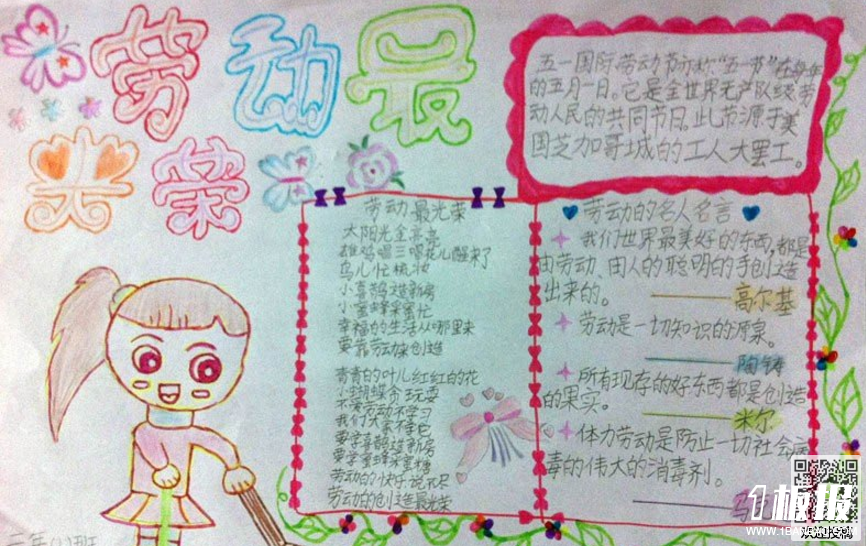 劳动最
光荣
五一国际劳动节亦称"五一节"在每年
的五月一日。它是全世界无产阶级、劳
动人民的共同节日。此节源于美
国芝加哥城的工人大罢工。
劳动最光荣
太阳光金亮亮
雄鸡唱三唱花儿醒来了
鸟儿忙梳妆
小喜鹊造新房
小蜜蜂采蜜忙
幸福的生活从哪里来
要靠劳动来创造
青青的叶儿红红的花
小蝴蝶贪玩耍
不爱劳动不学习
我们大家不学它
要学喜鹊造新房
要学蜜蜂采蜜糖
劳动的快乐说不尽
劳动的创造最光荣
劳动的名人名言
我们世界最美好的东西,都是
由劳动、由人的聪明的手创造
出来的。
高尔基
劳动是一切知识的源泉。
陶铸
所有现存的好东西都是创造
的果实。
米尔
体力劳动是防止一切社会病
毒的伟大的消毒剂。
马
1板报
WWW.1BANBAO.COM